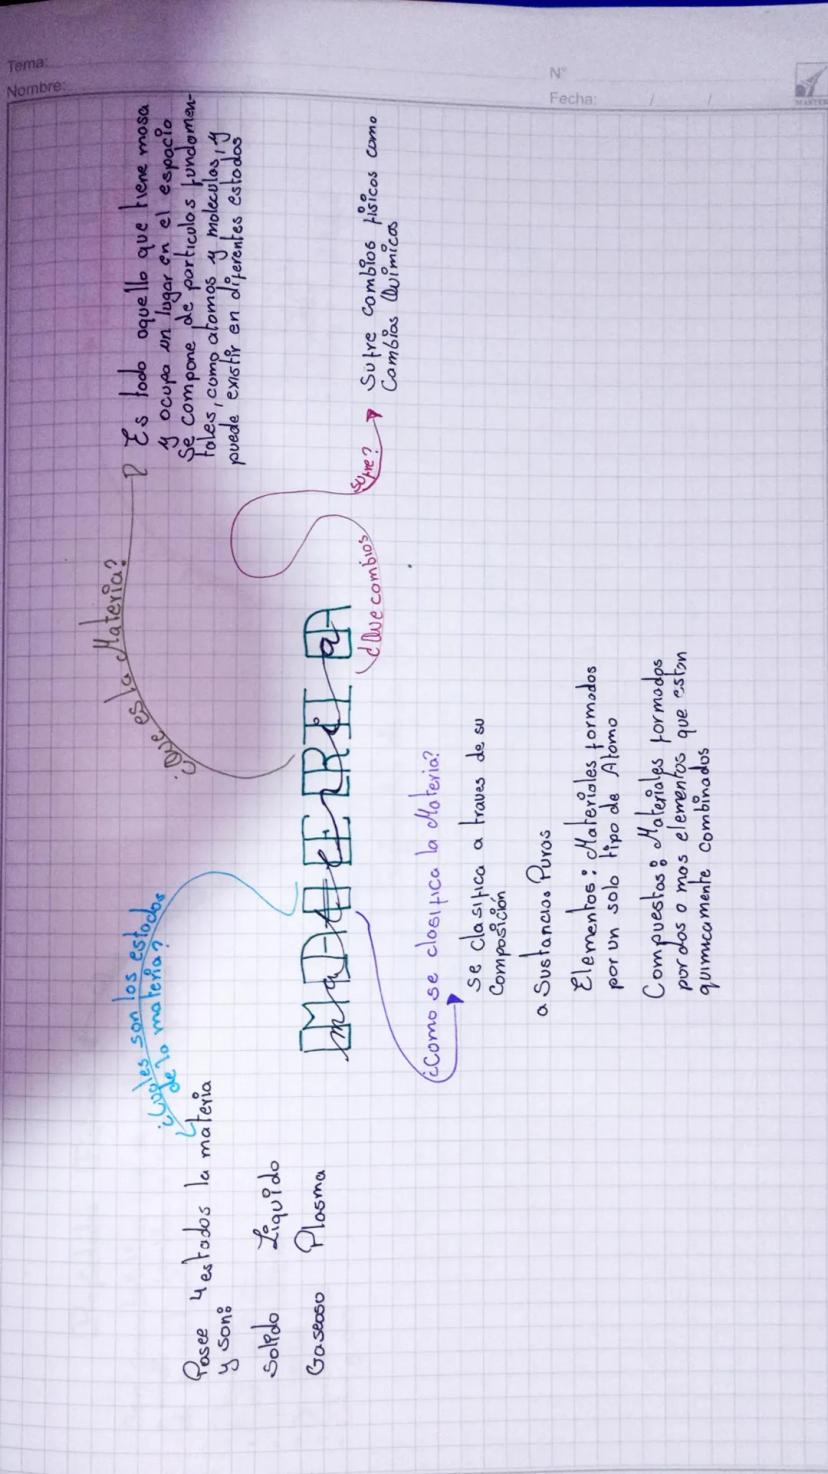 Tema:
Nombre:
N°
Fecha: / /
MASTER
¿Que es la Materia?
Es todo aquello que tiene masa
y ocupa un lugar en el espacio
Se compone de particulas fundamen-
tales, como atomos y moleculas, y
puede existir en diferentes estados
¿Cuales son los estados
de la materia?
Posee 4 estados la materia
y son:
Solido Liquido
Gaseoso Plasma
MATERIA
¿Que cambios
sufre?
Sufre cambios fisicos como
Cambios Quimicos
¿Como se clasifica la Materia?
se clasifica a traves de su
Composición
a Sustancias Puras
Elementos: Materiales formados
por un solo tipo de Atomo
Compuestos: Materiales formados
por dos o mas elementos que estan
quimicamente combinados